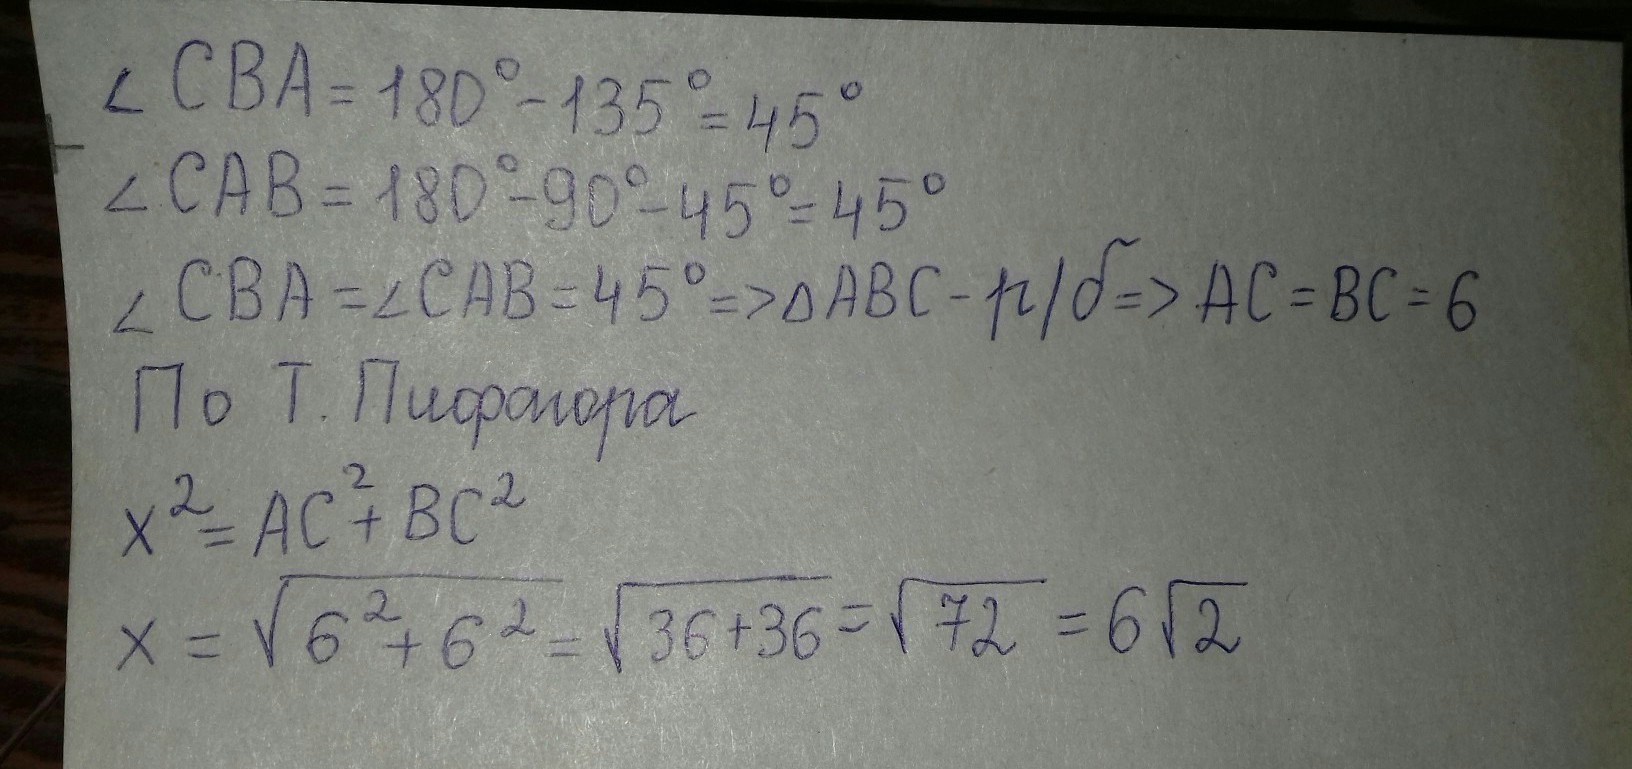 ∠CBA=180°-135°=45°
∠CAB=180°-90°-45°=45°
∠CBA=∠CAB=45°=>ΔABC-р/б=>AC=BC=6
По Т. Пифагора
x²=AC²+BC²
x=√(6²+6²)=√(36+36)=√72=6√2